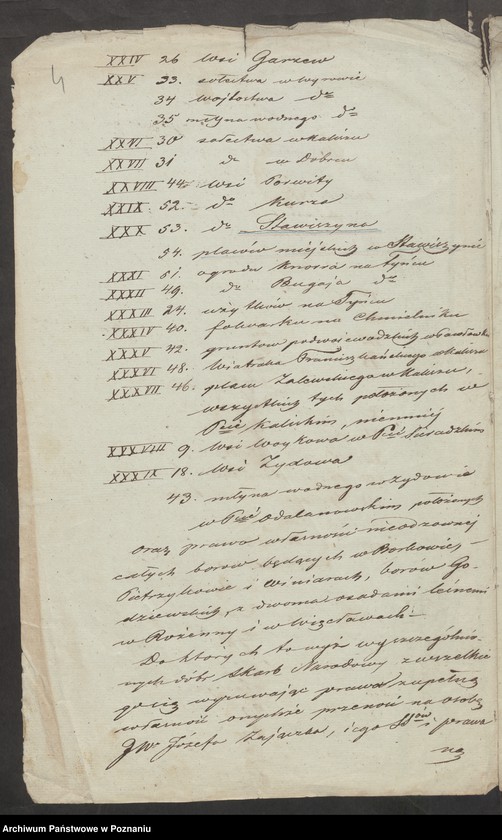 4
XXIV 26 wsi Garzew
XXV 33. sołectwa w Wyrowie
34 wójtostwa do
35 młyna wodnego do
XXVI 30 sołectwa w Kaliszu
XXVII 31 do w Dobrcu
XXVIII 44 wsi Borwity
XXIX 52 do Kurza
XXX 53. do Stawiszyna
54. placów miejskich w Stawiszynie
XXXI 51. ogrodu Knorra na Tyńcu
XXXII 49. do Bugaja do
XXXIII 24. użytków na Tyńcu
XXXIV 40. folwarku na Chmielniku
XXXV 42. gruntów podwojewodzińskich
XXXVI 48. wiatraka Franciszkańskiego w Kaliszu
XXXVII 46. placu Zalewskiego w Kaliszu,
wszystkich tych położonych w
Pcie Kaliskim, niemniej
XXXVIII 9. wsi Woykowa w Pcie Sieradzkim
XXXIX 18. wsi Żydowa
43. młyna wodnego w Żydowie
w Pcie Odalanowskim położonych
oraz prawo własności nieodzownej
całych borów będących w Borkowie,
Pietrzykowie i Winiarach, borów Go-
dziewskich, z dwoma osadami leśnemi
w Rożenny i w Więcławach.
Do których to wyż wyszczególnio-
nych dóbr Skarb Narodowy z wszelkie
go się wyzuwając prawa zupełną
własność onychże przenosi na osobę
JW. Józefa Zajączka, iego i prawa
na
Archiwum Państwowe w Poznaniu